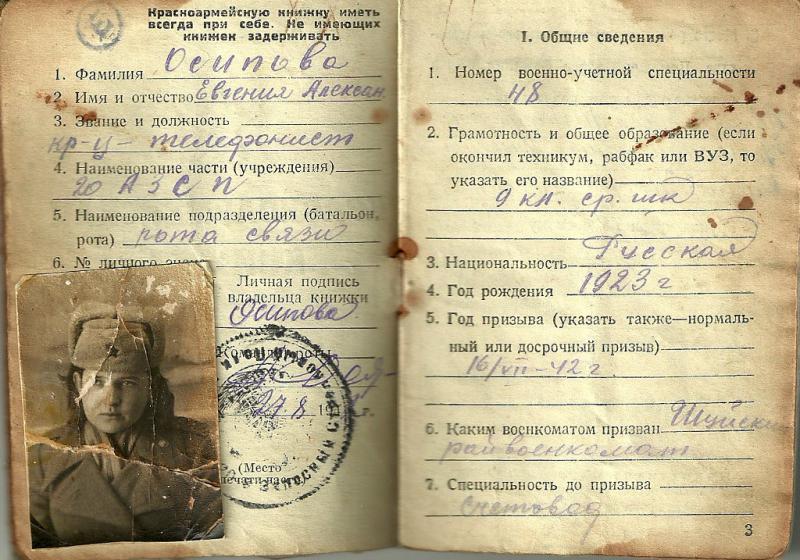 Красноармейскую книжку иметь
всегда при себе. Не имеющих
книжек задерживать
1. Фамилия Осипова
2. Имя и отчество Евгения Алексан
3. Звание и должность
кр-ц - телефонист
4. Наименование части (учреждения)
20 АЗСП
5. Наименование подразделения (батальон,
рота) рота связи
6. № личного знака
Личная подпись
владельца книжки
Осипова
Командир роты
27.8
(Место
печати
I. Общие сведения
1. Номер военно-учетной специальности
48
2. Грамотность и общее образование (если
окончил техникум, рабфак или ВУЗ, то
указать его название)
9 кл. ср. шк
3. Национальность Русская
4. Год рождения 1923 г
5. Год призыва (указать также—нормаль-
ный или досрочный призыв)
16/VII-42 г.
6. Каким военкоматом призван Шуйским
райвоенкомат
7. Специальность до призыва
Счетовод
3